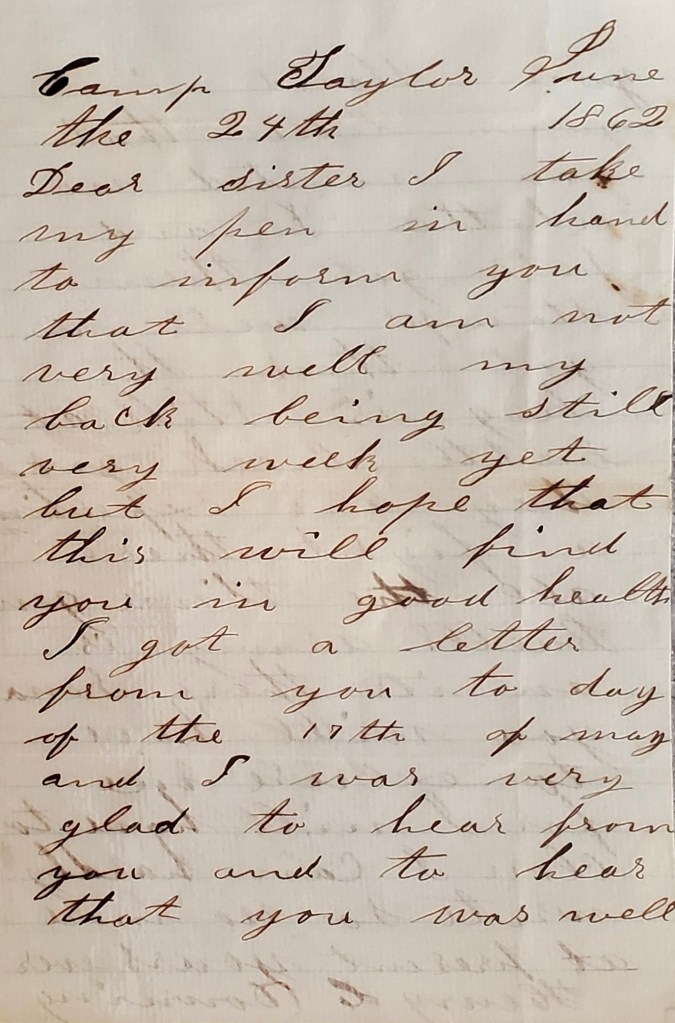 Camp Taylor June
the 24th 1862
Dear sister I take
my pen in hand
to inform you
that I am not
very well my
back being still
very week yet
but I hope that
this will find
you in good health
I got a letter
from you to day
of the 17th of may
and I was very
glad to hear from
you and to hear
that you was well